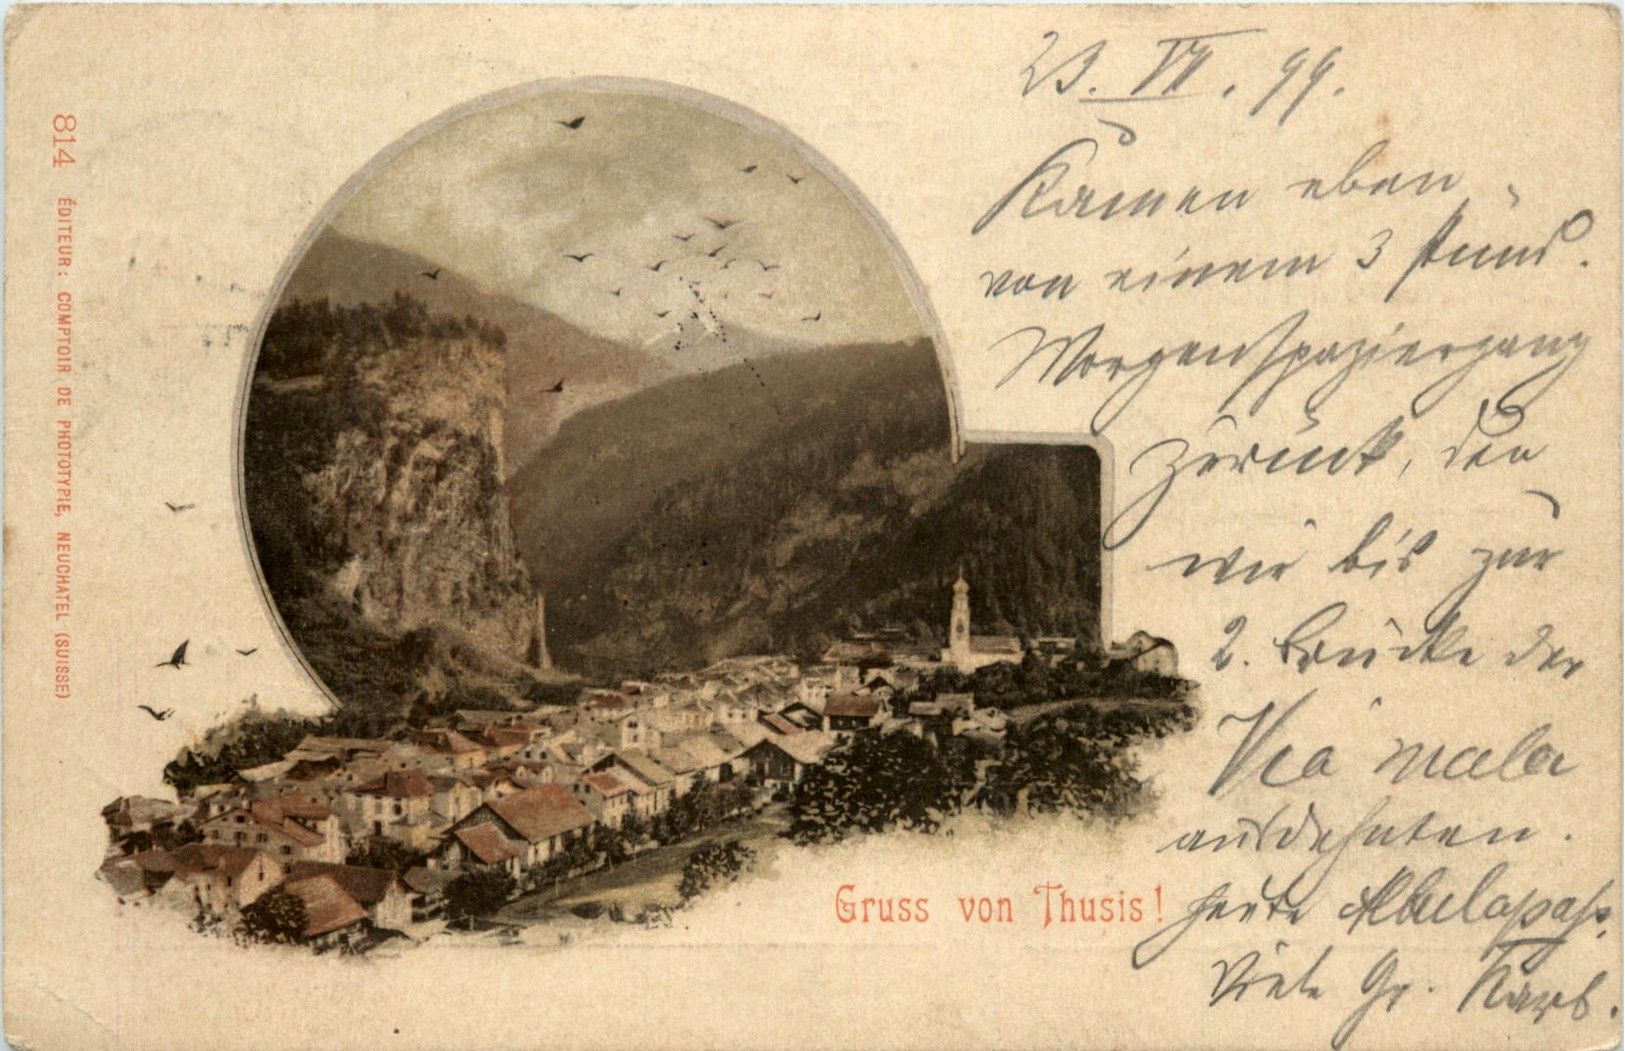 814 ÉDITEUR: COMPTOIR DE PHOTOTYPIE, NEUCHATEL (SUISSE)
23. VII. 99.
Kamen eben
von einem 3 stünd.
Morgenspaziergang
zurück, den
wir bis zur
2. Brücke der
Via mala
ausdehnten.
heute Albulapass.
Viele Gr.
Gruss von Thusis!